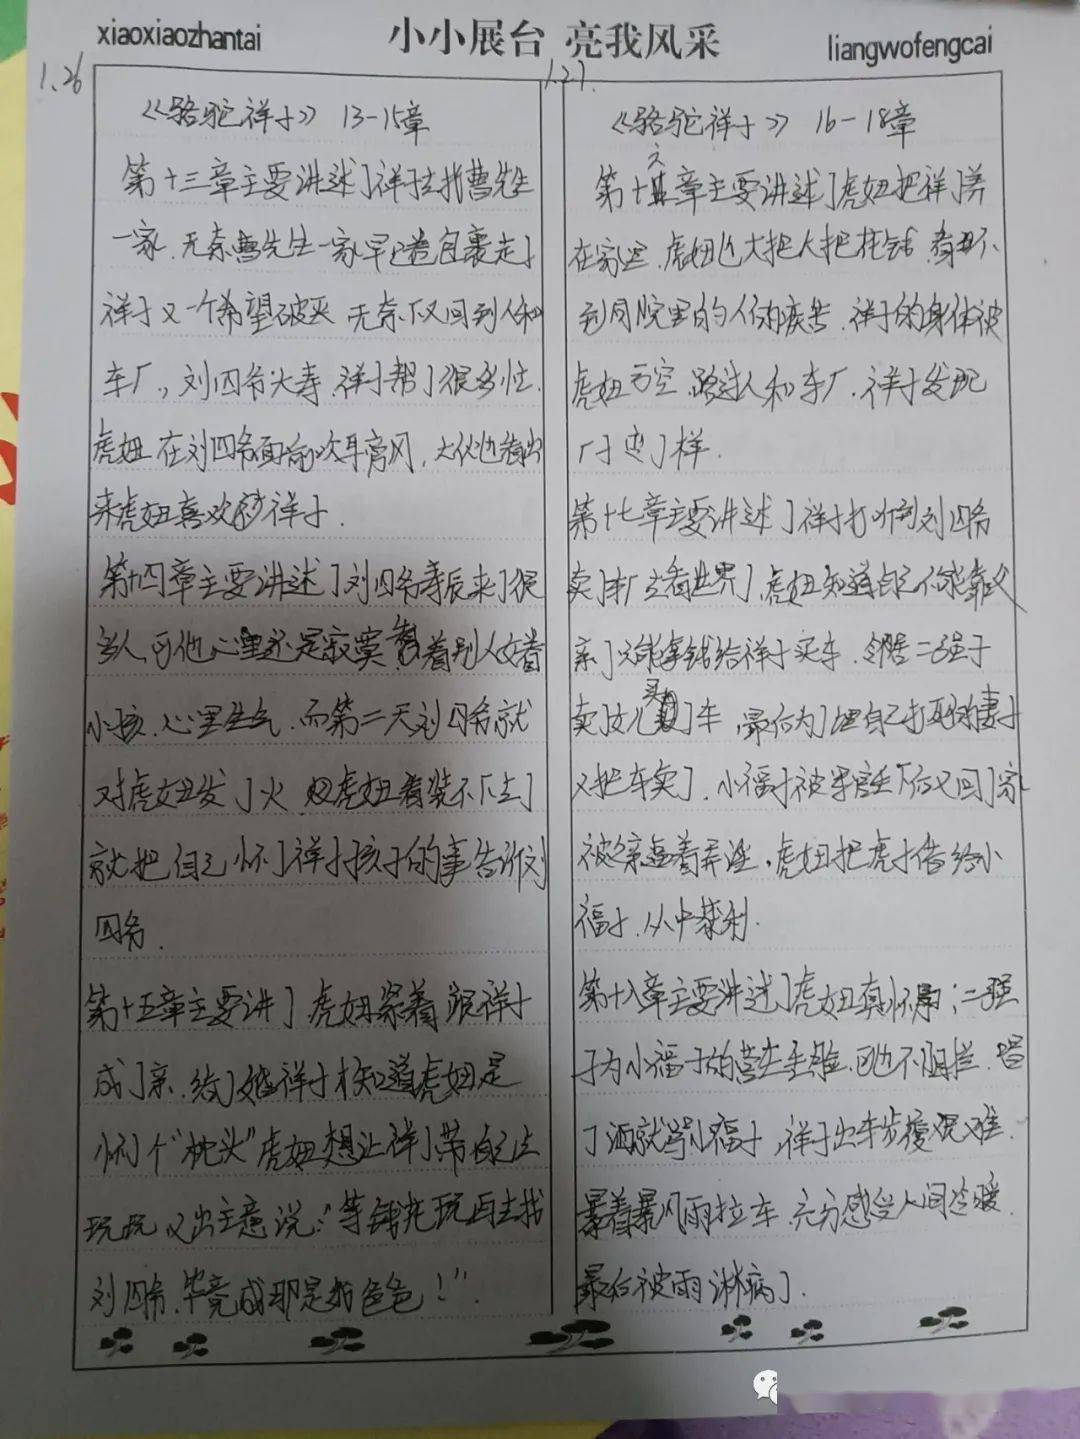 xiaoxiaozhantai
小小展台 亮我风采
liangwofengcai
1.26
《骆驼祥子》 13-15章
第十三章主要讲述了祥子去找曹先生
一家，无奈曹先生一家早已卷包裹走了
祥子又一个希望破灭 无奈下又回到人和
车厂，刘四爷大寿，祥子帮了很多忙，
虎妞在刘四爷面前吹耳旁风，大伙也看出
来虎妞喜欢祥子．
第十四章主要讲述了刘四爷寿辰来了很
多人，可他心里还是寂寞 看着别人女眷
小孩，心里生气，而第二天刘四爷就
对虎妞发了火 虎妞看装不下去了
就把自己怀了祥子孩子的事告诉刘
四爷．
第十五章主要讲了虎妞紧着跟祥子
成了亲，结了婚祥子才知道虎妞是
怀个"枕头"虎妞想让祥子带自己去
玩玩 又出主意说："等钱花玩再去找
刘四爷，毕竟咸那是爸爸！"．
1.27.
《骆驼祥子》 16-18章
第十六章主要讲述了虎妞把祥子养
在家里，虎妞也大把大把花钱，看不
到同院里的人的疾苦，祥子的身体被
虎妞掏空，路过人和车厂，祥子发现
厂子变了样．
第十七章主要讲述了祥子打听到刘四爷
卖了车厂去看世界了，虎妞知道自己不能靠父
亲了只能拿钱给祥子买车，邻居二强子
卖了女儿买了车，最后为了埋自己打死的妻子
又把车卖了，小福子被军官丢下后又回了家
被父亲逼着弄活，虎妞把虎子借给小
福子，从中获利．
第十八章主要讲述了虎妞真怀孕；二强
子为小福子的营生羞耻，可也不阻拦，喝
了酒就骂小福子，祥子出车步履艰难，
暴着暴风雨拉车，充分感受人间冷暖，
最后被雨淋病了．